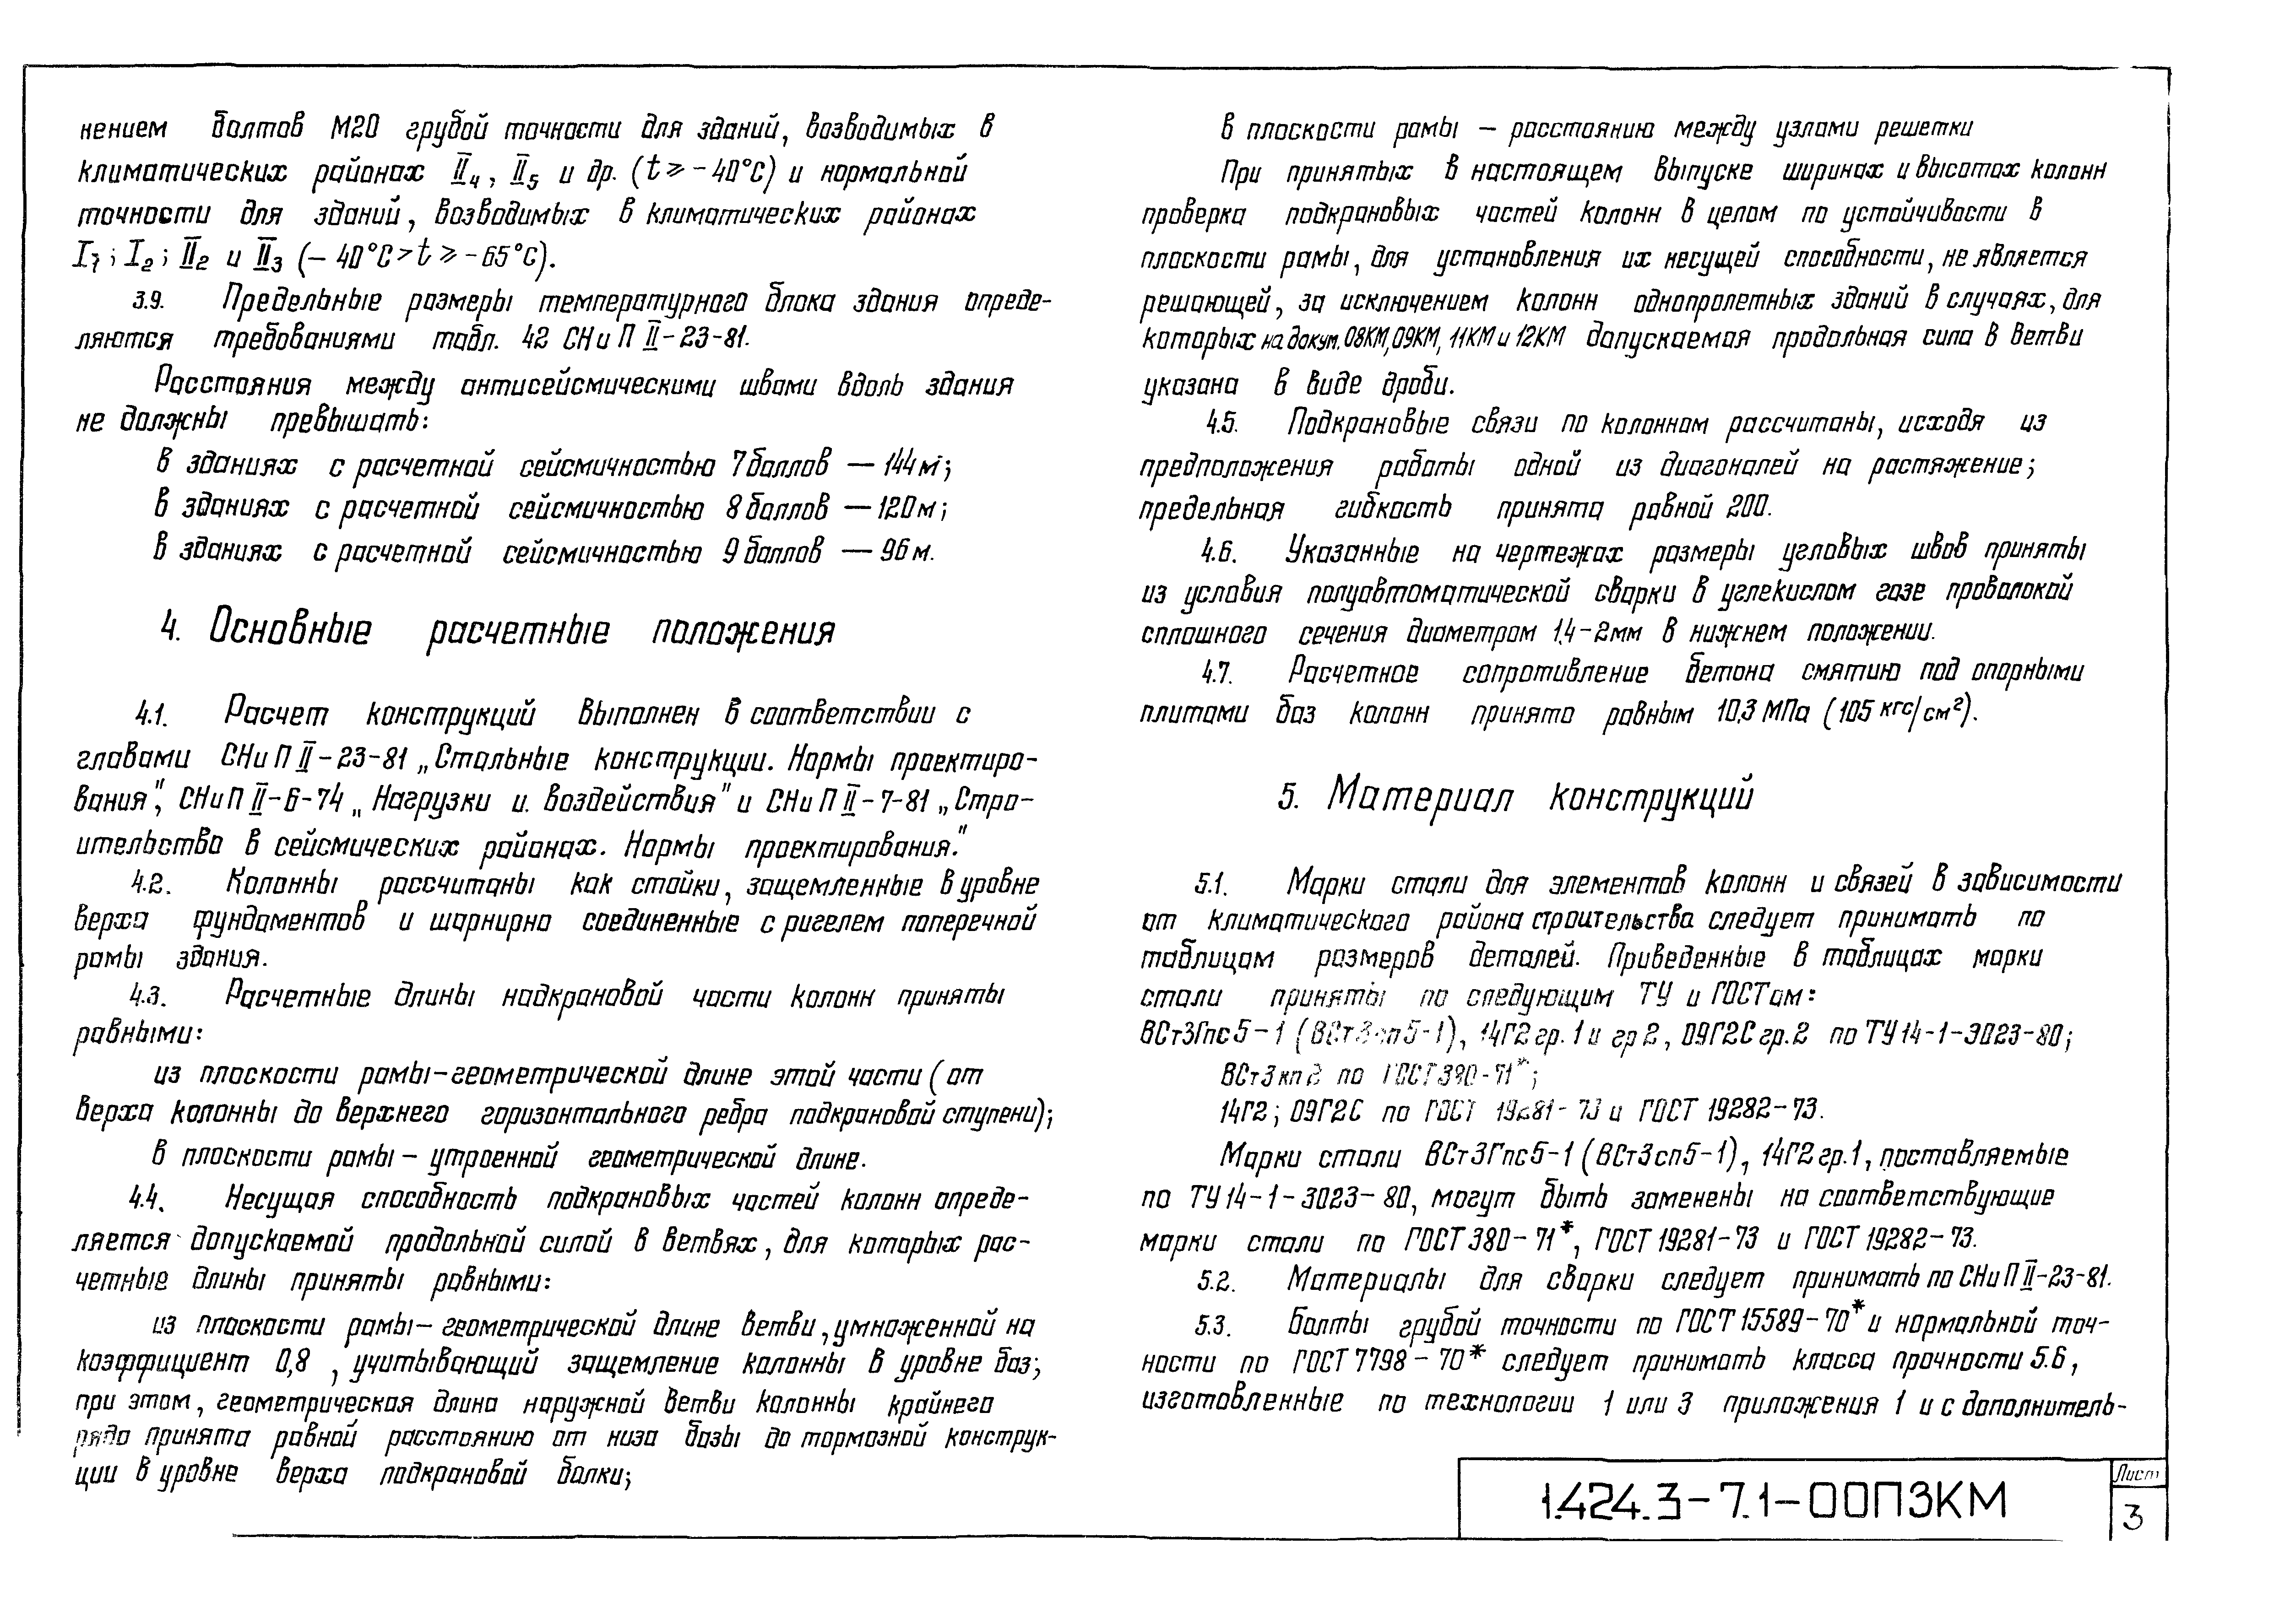 нением болтов М20 грубой точности для зданий, возводимых в
климатических районах II₄, II₅ и др. (t ⩾ -40°С) и нормальной
точности для зданий, возводимых в климатических районах
I₁; I₂; II₂ и II₃ (- 40°С > t ⩾ -65°С).
3.9. Предельные размеры температурного блока здания опреде-
ляются требованиями табл. 42 СНиП II-23-81.
Расстояния между антисейсмическими швами вдоль здания
не должны превышать:
в зданиях с расчетной сейсмичностью 7 баллов — 144 м;
в зданиях с расчетной сейсмичностью 8 баллов — 120 м;
в зданиях с расчетной сейсмичностью 9 баллов — 96 м.
4. Основные расчетные положения
4.1. Расчет конструкций выполнен в соответствии с
главами СНиП II-23-81 „Стальные конструкции. Нормы проектиро-
вания", СНиП II-6-74 „Нагрузки и воздействия" и СНиП II-7-81 „Стро-
ительство в сейсмических районах. Нормы проектирования."
4.2. Колонны рассчитаны как стойки, защемленные в уровне
верха фундаментов и шарнирно соединенные с ригелем поперечной
рамы здания.
4.3. Расчетные длины надкрановой части колонн приняты
равными:
из плоскости рамы-геометрической длине этой части (от
верха колонны до верхнего горизонтального ребра подкрановой ступени);
в плоскости рамы - утроенной геометрической длине.
4.4. Несущая способность подкрановых частей колонн опреде-
ляется допускаемой продольной силой в ветвях, для которых рас-
четные длины приняты равными:
из плоскости рамы- геометрической длине ветви, умноженной на
коэффициент 0,8 , учитывающий защемление колонны в уровне баз;
при этом, геометрическая длина наружной ветви колонны крайнего
ряда принята равной расстоянию от низа базы до тормозной конструк-
ции в уровне верха подкрановой балки;
в плоскости рамы - расстоянию между узлами решетки
При принятых в настоящем выпуске ширинах и высотах колонн
проверка подкрановых частей колонн в целом по устойчивости в
плоскости рамы, для установления их несущей способности, не является
решающей, за исключением колонн однопролетных зданий в случаях, для
которых на докум. 08КМ, 09КМ, 11КМ и 12КМ допускаемая продольная сила в ветви
указана в виде дроби.
4.5. Подкрановые связи по колоннам рассчитаны, исходя из
предположения работы одной из диагоналей на растяжение;
предельная гибкость принята равной 200.
4.6. Указанные на чертежах размеры угловых швов приняты
из условия полуавтоматической сварки в углекислом газе проволокой
сплошного сечения диаметром 1,4-2мм в нижнем положении.
4.7. Расчетное сопротивление бетона смятию под опорными
плитами баз колонн принято равным 10,3 МПа (105 кгс/см²).
5. Материал конструкций
5.1. Марки стали для элементов колонн и связей в зависимости
от климатического района строительства следует принимать по
таблицам размеров деталей. Приведенные в таблицах марки
стали приняты по следующим ТУ и ГОСТам:
ВСт3Гпс5-1 (ВСт3сп5-1), 14Г2 гр.1 и гр 2, 09Г2С гр.2 по ТУ 14-1-3023-80;
ВСт3кп2 по ГОСТ 380-71*;
14Г2; 09Г2С по ГОСТ 19281-73 и ГОСТ 19282-73.
Марки стали ВСт3Гпс5-1 (ВСт3сп5-1), 14Г2 гр.1, поставляемые
по ТУ 14-1-3023-80, могут быть заменены на соответствующие
марки стали по ГОСТ 380-71*, ГОСТ 19281-73 и ГОСТ 19282-73.
5.2. Материалы для сварки следует принимать по СНиП II-23-81.
5.3. Болты грубой точности по ГОСТ 15589-70* и нормальной точ-
ности по ГОСТ 7798-70* следует принимать класса прочности 5.6,
изготовленные по технологии 1 или 3 приложения 1 и с дополнитель-
1.424.3-7.1-00ПЗКМ
Лист
3